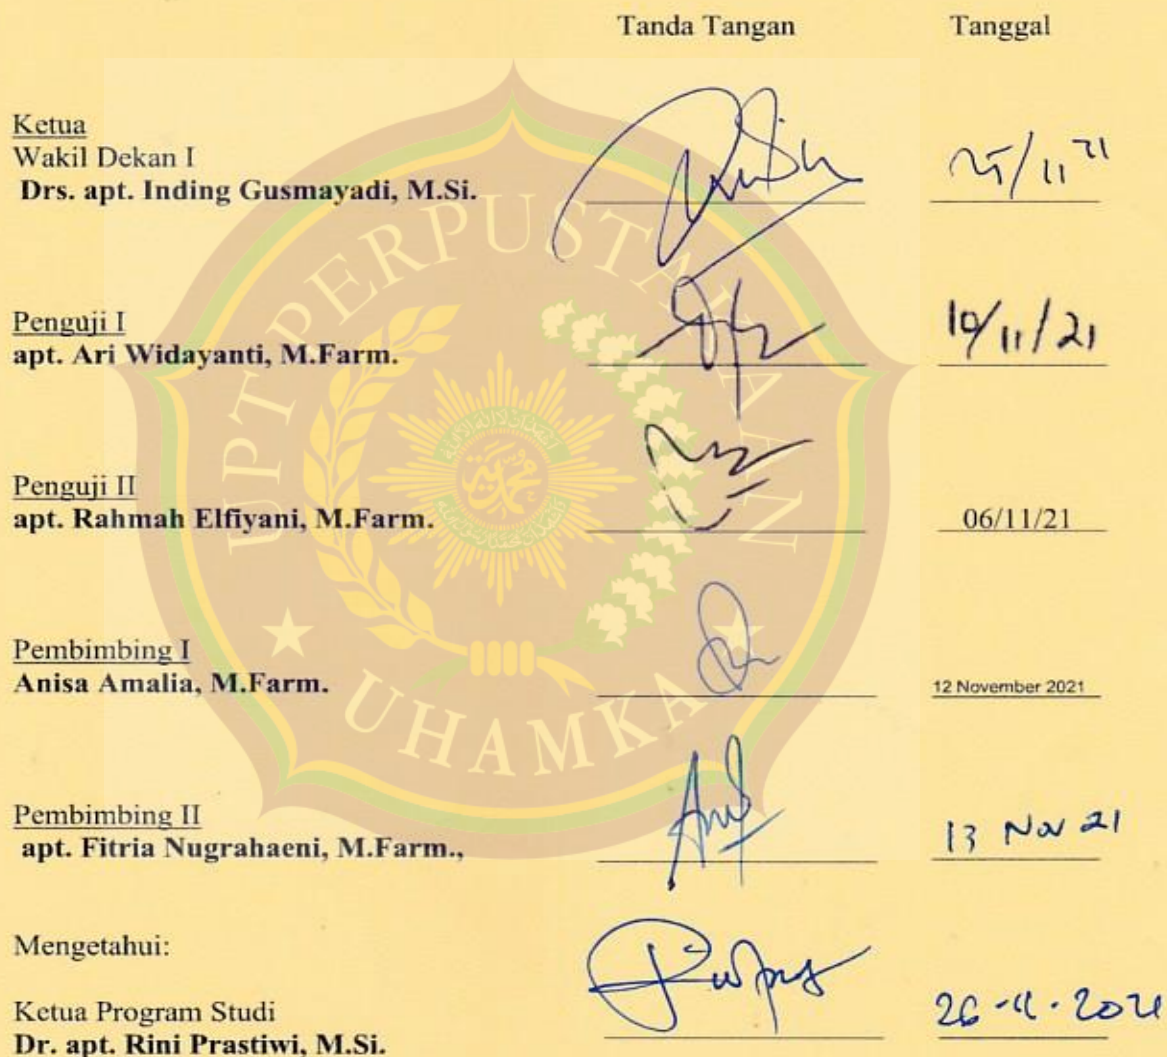 Tanda Tangan Tanggal
Ketua
Wakil Dekan I
Drs. apt. Inding Gusmayadi, M.Si.
Penguji I
apt. Ari Widayanti, M.Farm.
10/11/21
Penguji II
apt. Rahmah Elfiyani, M.Farm.
06/11/21
Pembimbing I
Anisa Amalia, M.Farm.
12 November 2021
Pembimbing II
apt. Fitria Nugrahaeni, M.Farm.,
13 Nov 21
Mengetahui:
Ketua Program Studi
Dr. apt. Rini Prastiwi, M.Si.
26-11-2021
UPT PERPUSTAKAAN
UHAMKA